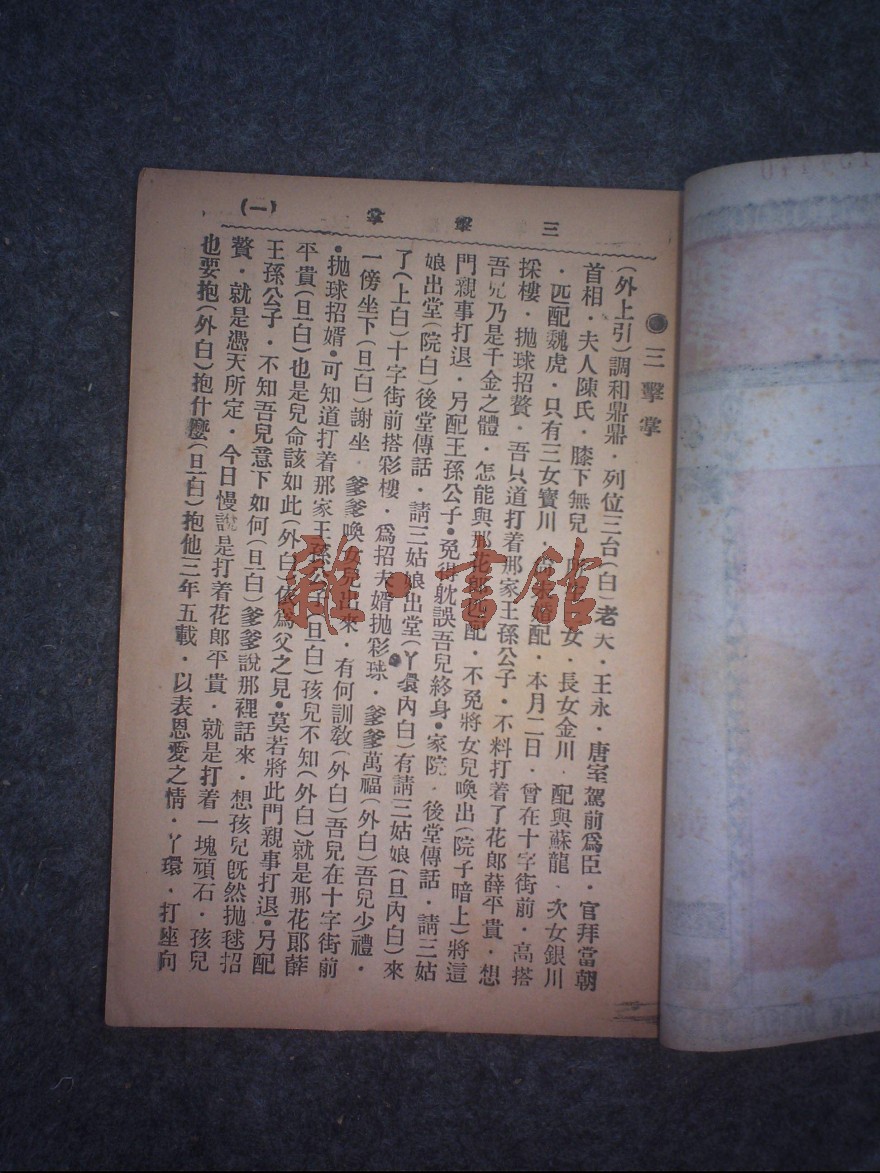 三擊掌
(一)
●三擊掌
(外上引)調和鼎鼎．列位三台(白)老夫．王永．唐室駕前爲臣．官拜當朝
首相．夫人陳氏．膝下無兒．女．長女金川．配與蘇龍．次女銀川
．匹配魏虎．只有三女寶川．配．本月二日．曾在十字街前．高搭
採樓．拋球招贅．吾只道打着那家王孫公子．不料打着了花郎薛平貴．想
吾兒乃是千金之體．怎能與那花郎匹配．不免將女兒喚出(院子暗上)將這
門親事打退．另配王孫公子●免得躭誤吾兒終身●家院．後堂傳話．請三姑
娘出堂(院白)後堂傳話．請三姑娘出堂(丫環內白)有請三姑娘(旦內白)來
了(上白)十字街前搭彩樓．爲招夫婿拋彩球．爹爹萬福(外白)吾兒少禮．
一傍坐下(旦白)謝坐．爹爹喚女兒出來．有何訓敎(外白)吾兒在十字街前
●拋球招婿●可知道打着那家王孫公子(旦白)孩兒不知(外白)就是那花郎薛
平貴(旦白)也是兒命該如此(外白)依爲父之見●莫若將此門親事打退●另配
王孫公子．不知吾兒意下如何(旦白)爹爹說那裡話來．想孩兒旣然拋毬招
贅．就是憑天所定．今日慢說是打着花郎平貴．就是打着一塊頑石．孩兒
也要抱(外白)抱什麼(旦白)抱他三年五載．以表恩愛之情．丫環．打座向
雜·書館